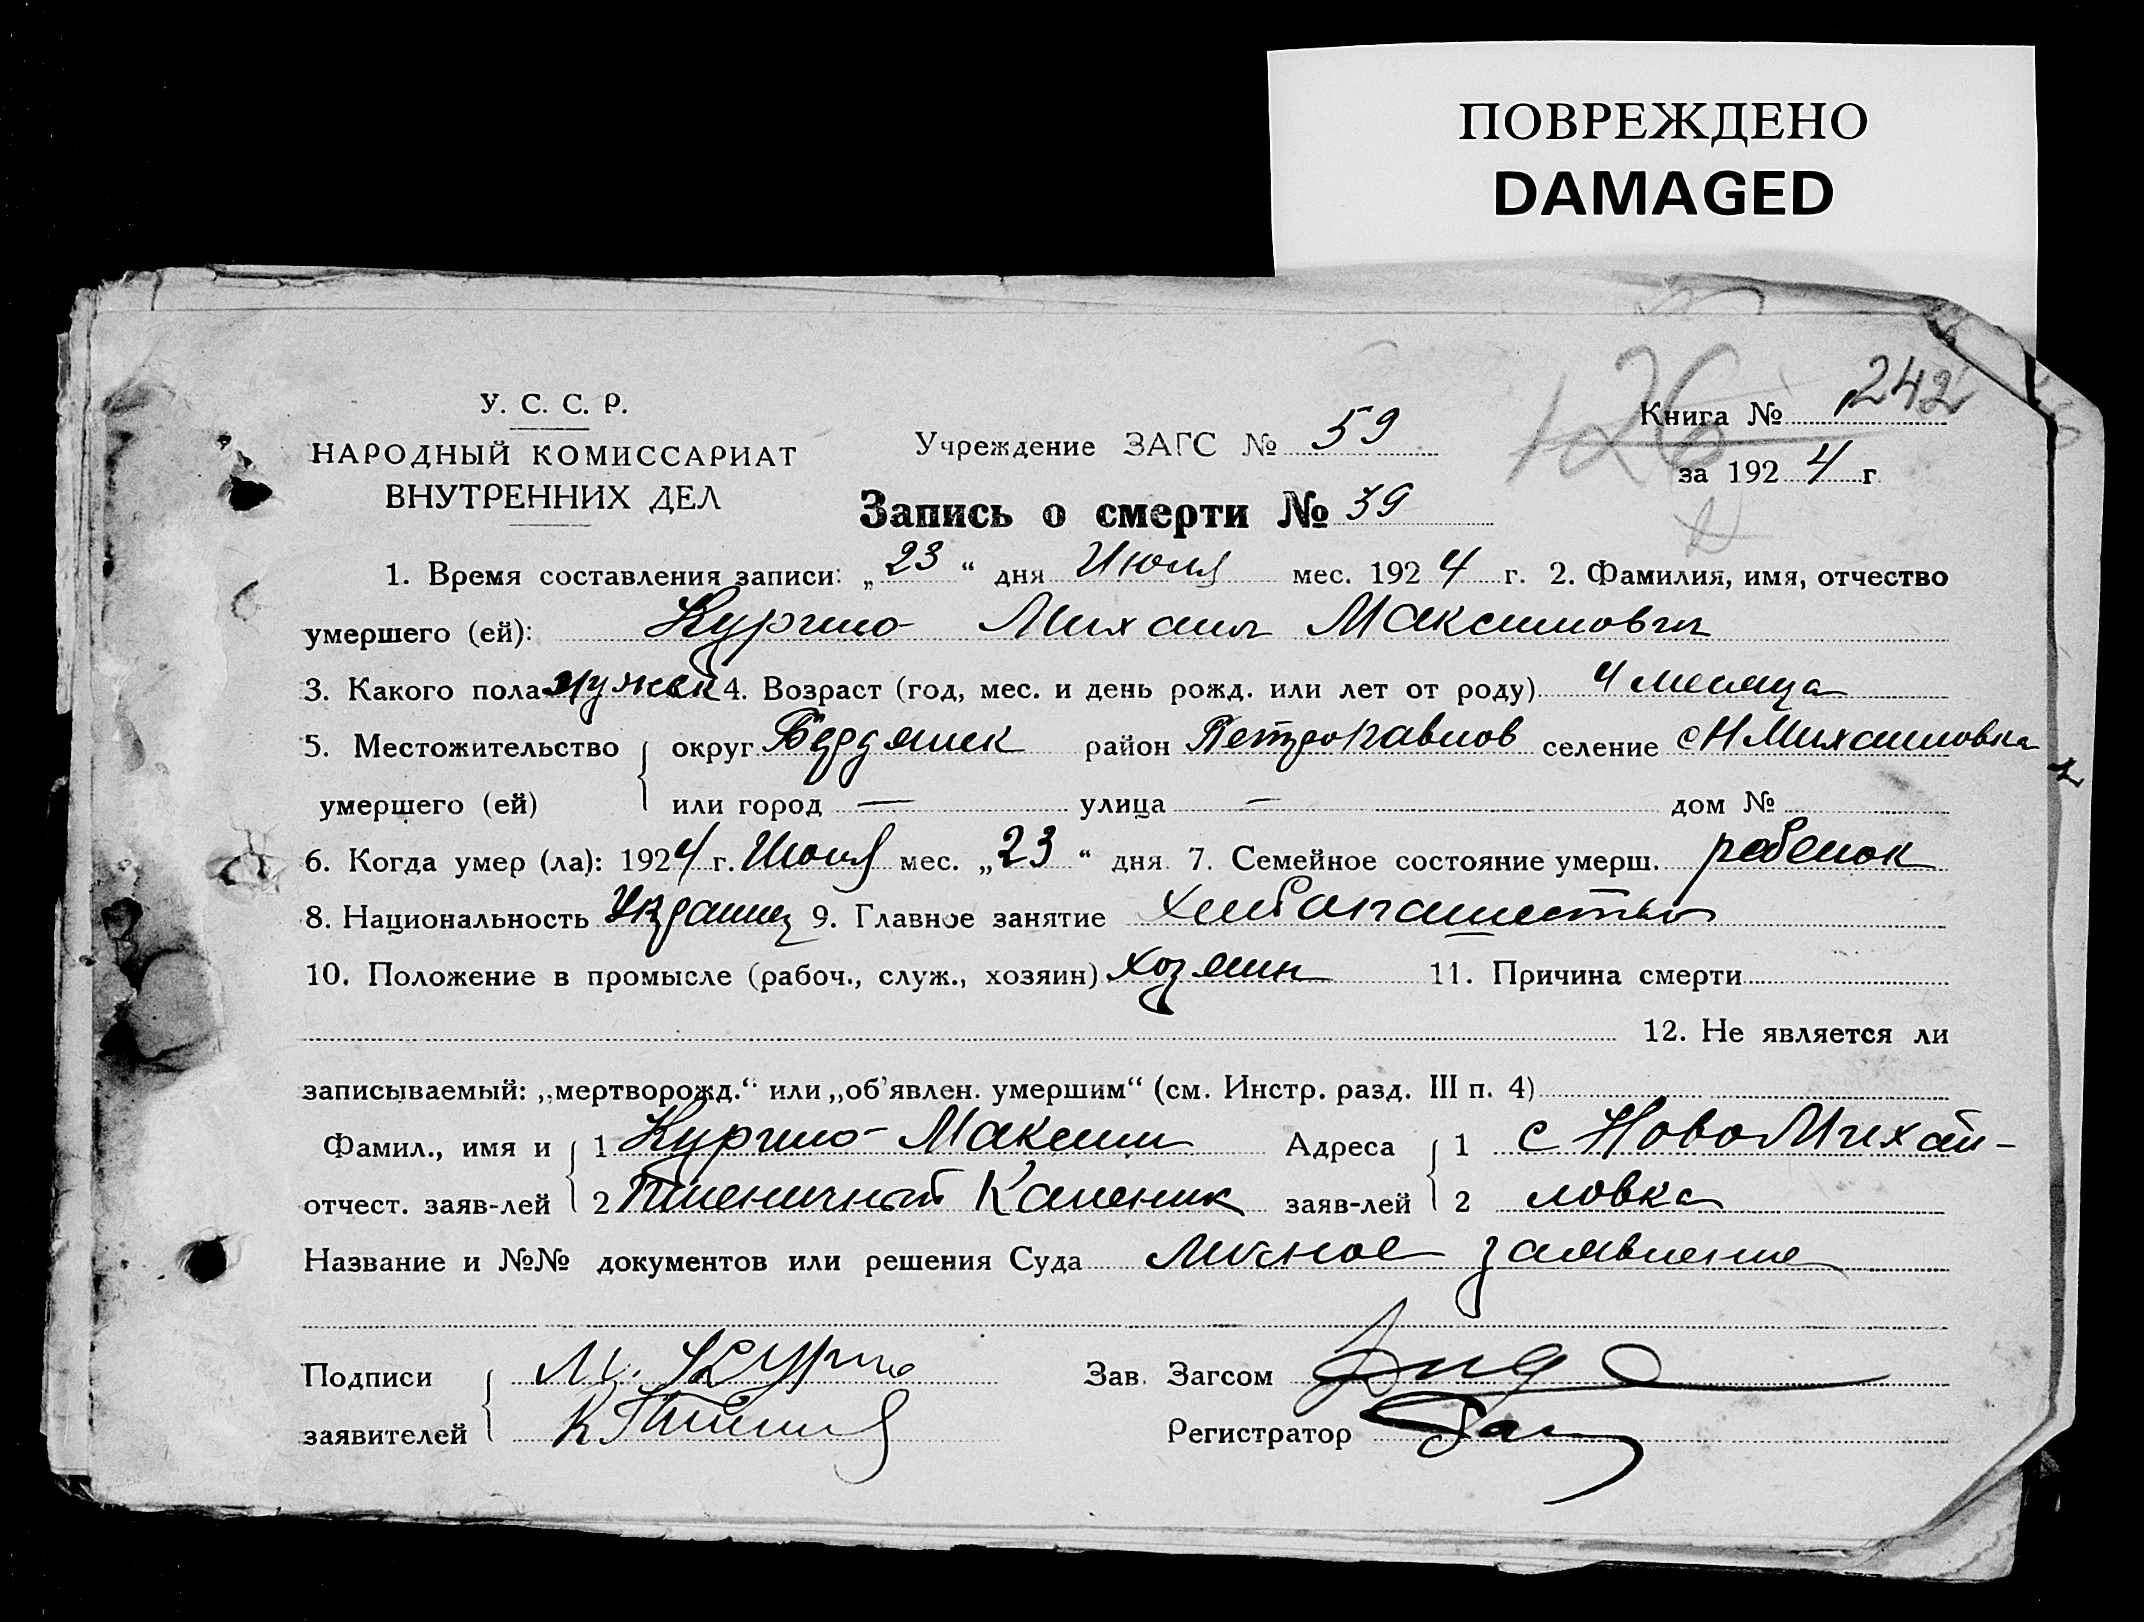 ПОВРЕЖДЕНО
DAMAGED
У. С. С. Р.
НАРОДНЫЙ КОМИССАРИАТ
ВНУТРЕННИХ ДЕЛ
Учреждение ЗАГС № 59
126
Книга № 242
за 1924 г
Запись о смерти № 39
1. Время составления записи: „23“ дня Июля мес. 1924 г. 2. Фамилия, имя, отчество
умершего (ей): Кургило Михаил Максимович
3. Какого пола мужск 4. Возраст (год, мес. и день рожд. или лет от роду) 4 месяца
5. Местожительство округ Бердянск район Петропавлов селение с Н Михайловка
умершего (ей) или город — улица — дом №
6. Когда умер (ла): 1924 г. Июля мес. „23“ дня. 7. Семейное состояние умерш. ребенок
8. Национальность Украинец 9. Главное занятие хлебопашество
10. Положение в промысле (рабоч., служ., хозяин) хозяин 11. Причина смерти
12. Не является ли
записываемый: „мертворожд.“ или „об'явлен. умершим“ (см. Инстр. разд. III п. 4)
Фамил., имя и 1 Кургило Максим Адреса 1 с НовоМихай-
отчест. заяв-лей 2 Пшеничный Каленик заяв-лей 2 ловка
Название и №№ документов или решения Суда личное заявление
Подписи М. Зав. Загсом
заявителей К Регистратор